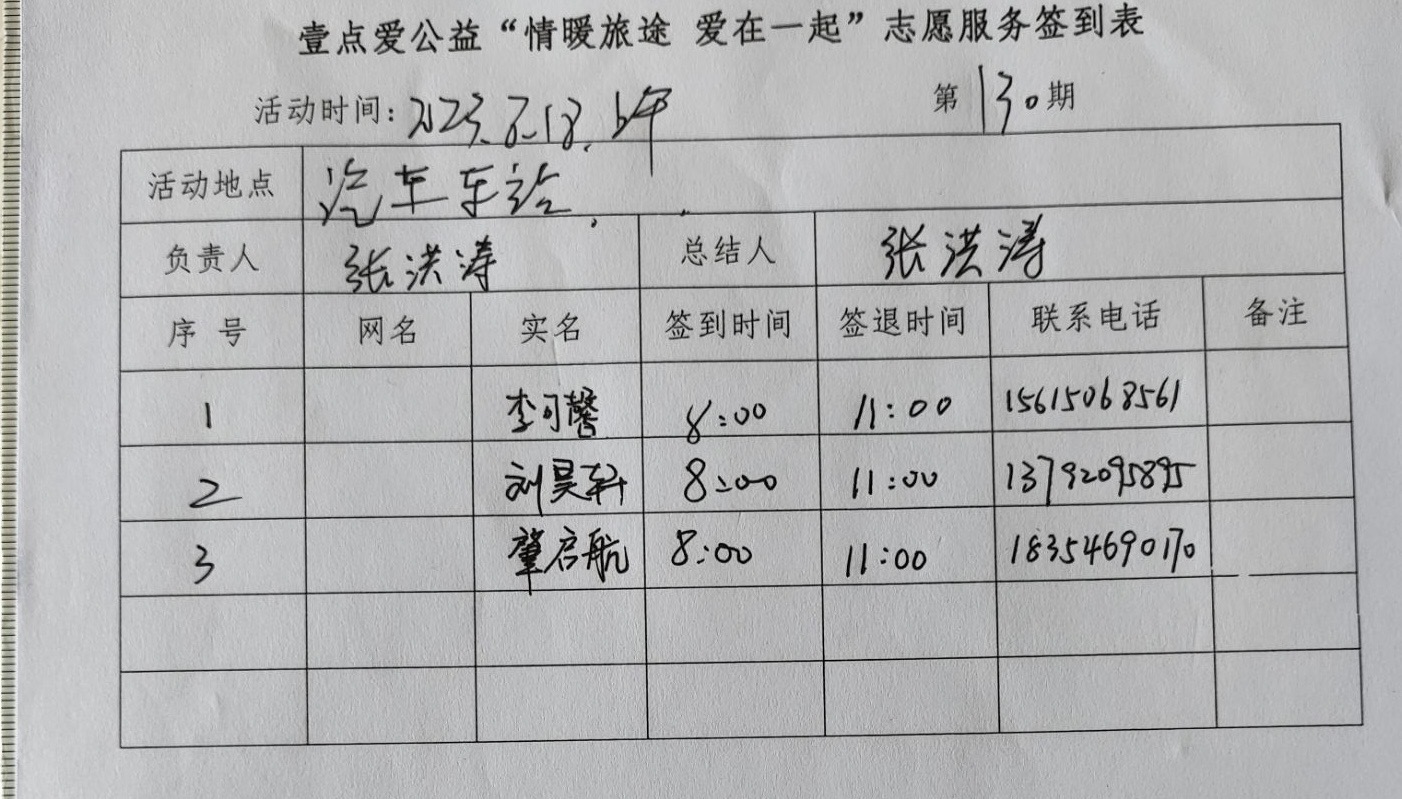 壹点爱公益“情暖旅途 爱在一起”志愿服务签到表
活动时间：2023.8.18.上午 第130期
活动地点 汽车车站.
负责人 张洪涛 总结人 张洪涛
序号 网名 实名 签到时间 签退时间 联系电话 备注
1 李可馨 8:00 11:00 15615068561
2 刘昊轩 8:00 11:00 13792095895
3 肇启航 8:00 11:00 18354690170